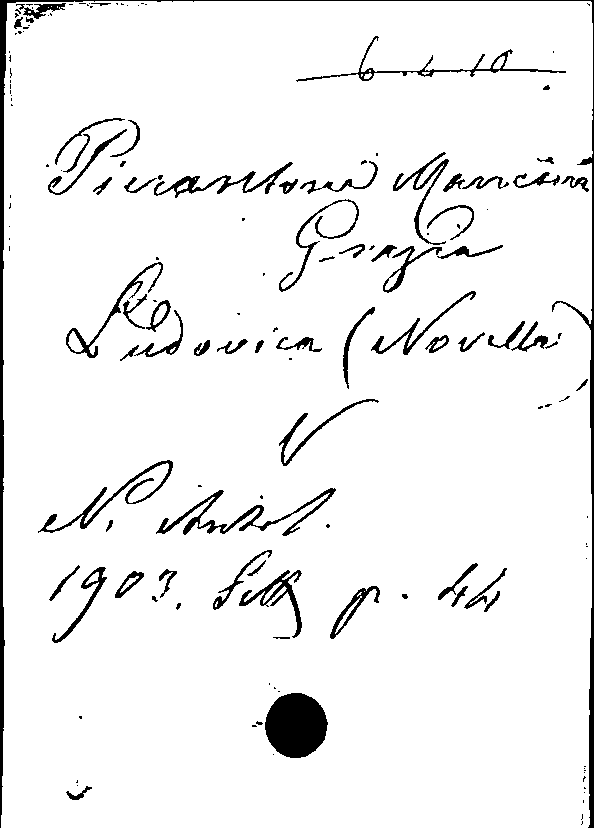 6.4.10
Pierantoni Mancini
Grazia
Ludovica (Novella)
V
N. Antol.
1903. Sett p. 44